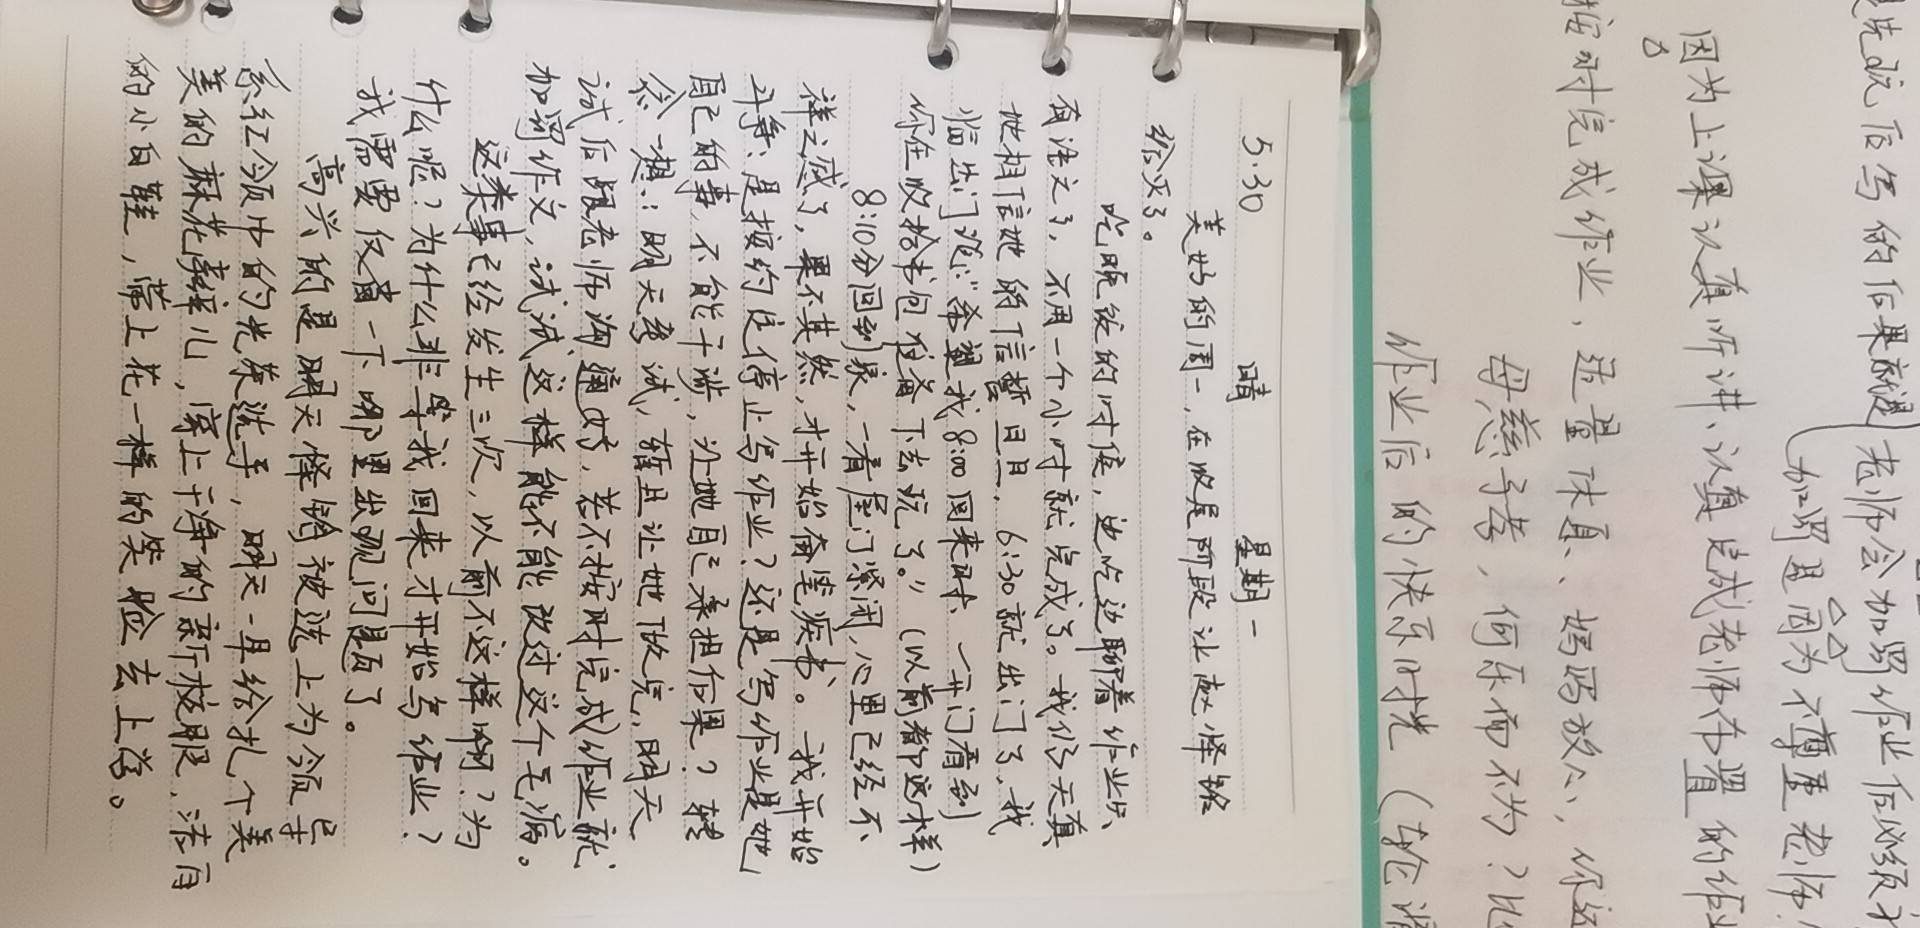 5.30 晴 星期一
美妙的周一,在收尾阶段让赵怿铭
给灭了。
吃晚饭的时侯,边吃边聊着作业只
有语文了,不用一个小时就完成了。我仍天真
地相信她的信誓旦旦,6:30就出门了,我
临出门说:“希望我8:00回来时,一开门看到
你在收拾书包准备下去玩了。”(以前都这样)
8:10分回到家,一看屋门紧闭,心里已经不
祥之感了,果不其然,才开始奋笔疾书。我开始
斗争:是按约定停止写作业?还是写作业是她
自己的事,不能干涉,让她自己承担后果?转
念一想:明天考试,暂且让她做完,明天
试后跟老师沟通好,若不按时完成作业就
加罚作文,试试这样能不能改过这个毛病。
这类事已经发生三次,以前不这样啊?为
什么呢?为什么非等我回来才开始写作业?
我需要反省一下哪里出现问题了。
高兴的是明天怿铭被选上为领导
系红领巾的光荣选手,明天一早给扎个美
美的麻花辫儿,穿上干净的新校服,洁白
的小白鞋,带上花一样的笑脸去上学。
后写的后果就是
老师会加罚作业后必须
加罚是因为不尊重老师
因为上课认真听讲、认真完成老师布置的作业
按时完成作业,适量休息、妈妈放心,你
母慈子孝,何乐而不为?
作业后的快乐时光